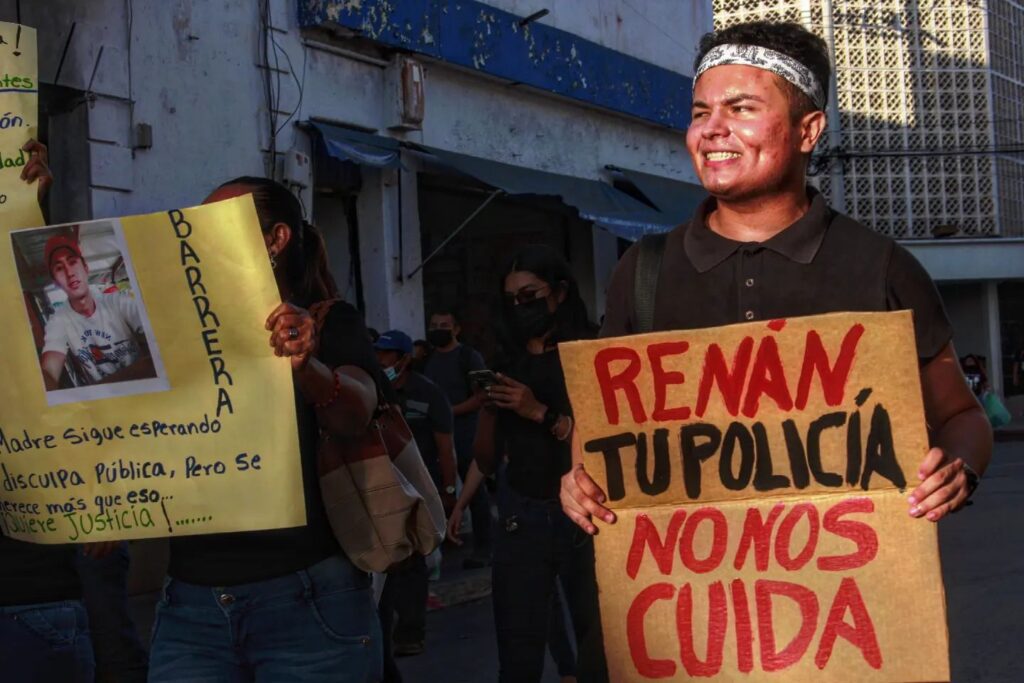 !
ntes
ón.
dad
o
BARRERA
Madre sigue esperando
disculpa Pública, Pero se
merece más que eso...
Quiere Justicia!.......
RENÁN
TU POLICÍA
NO NOS
CUIDA